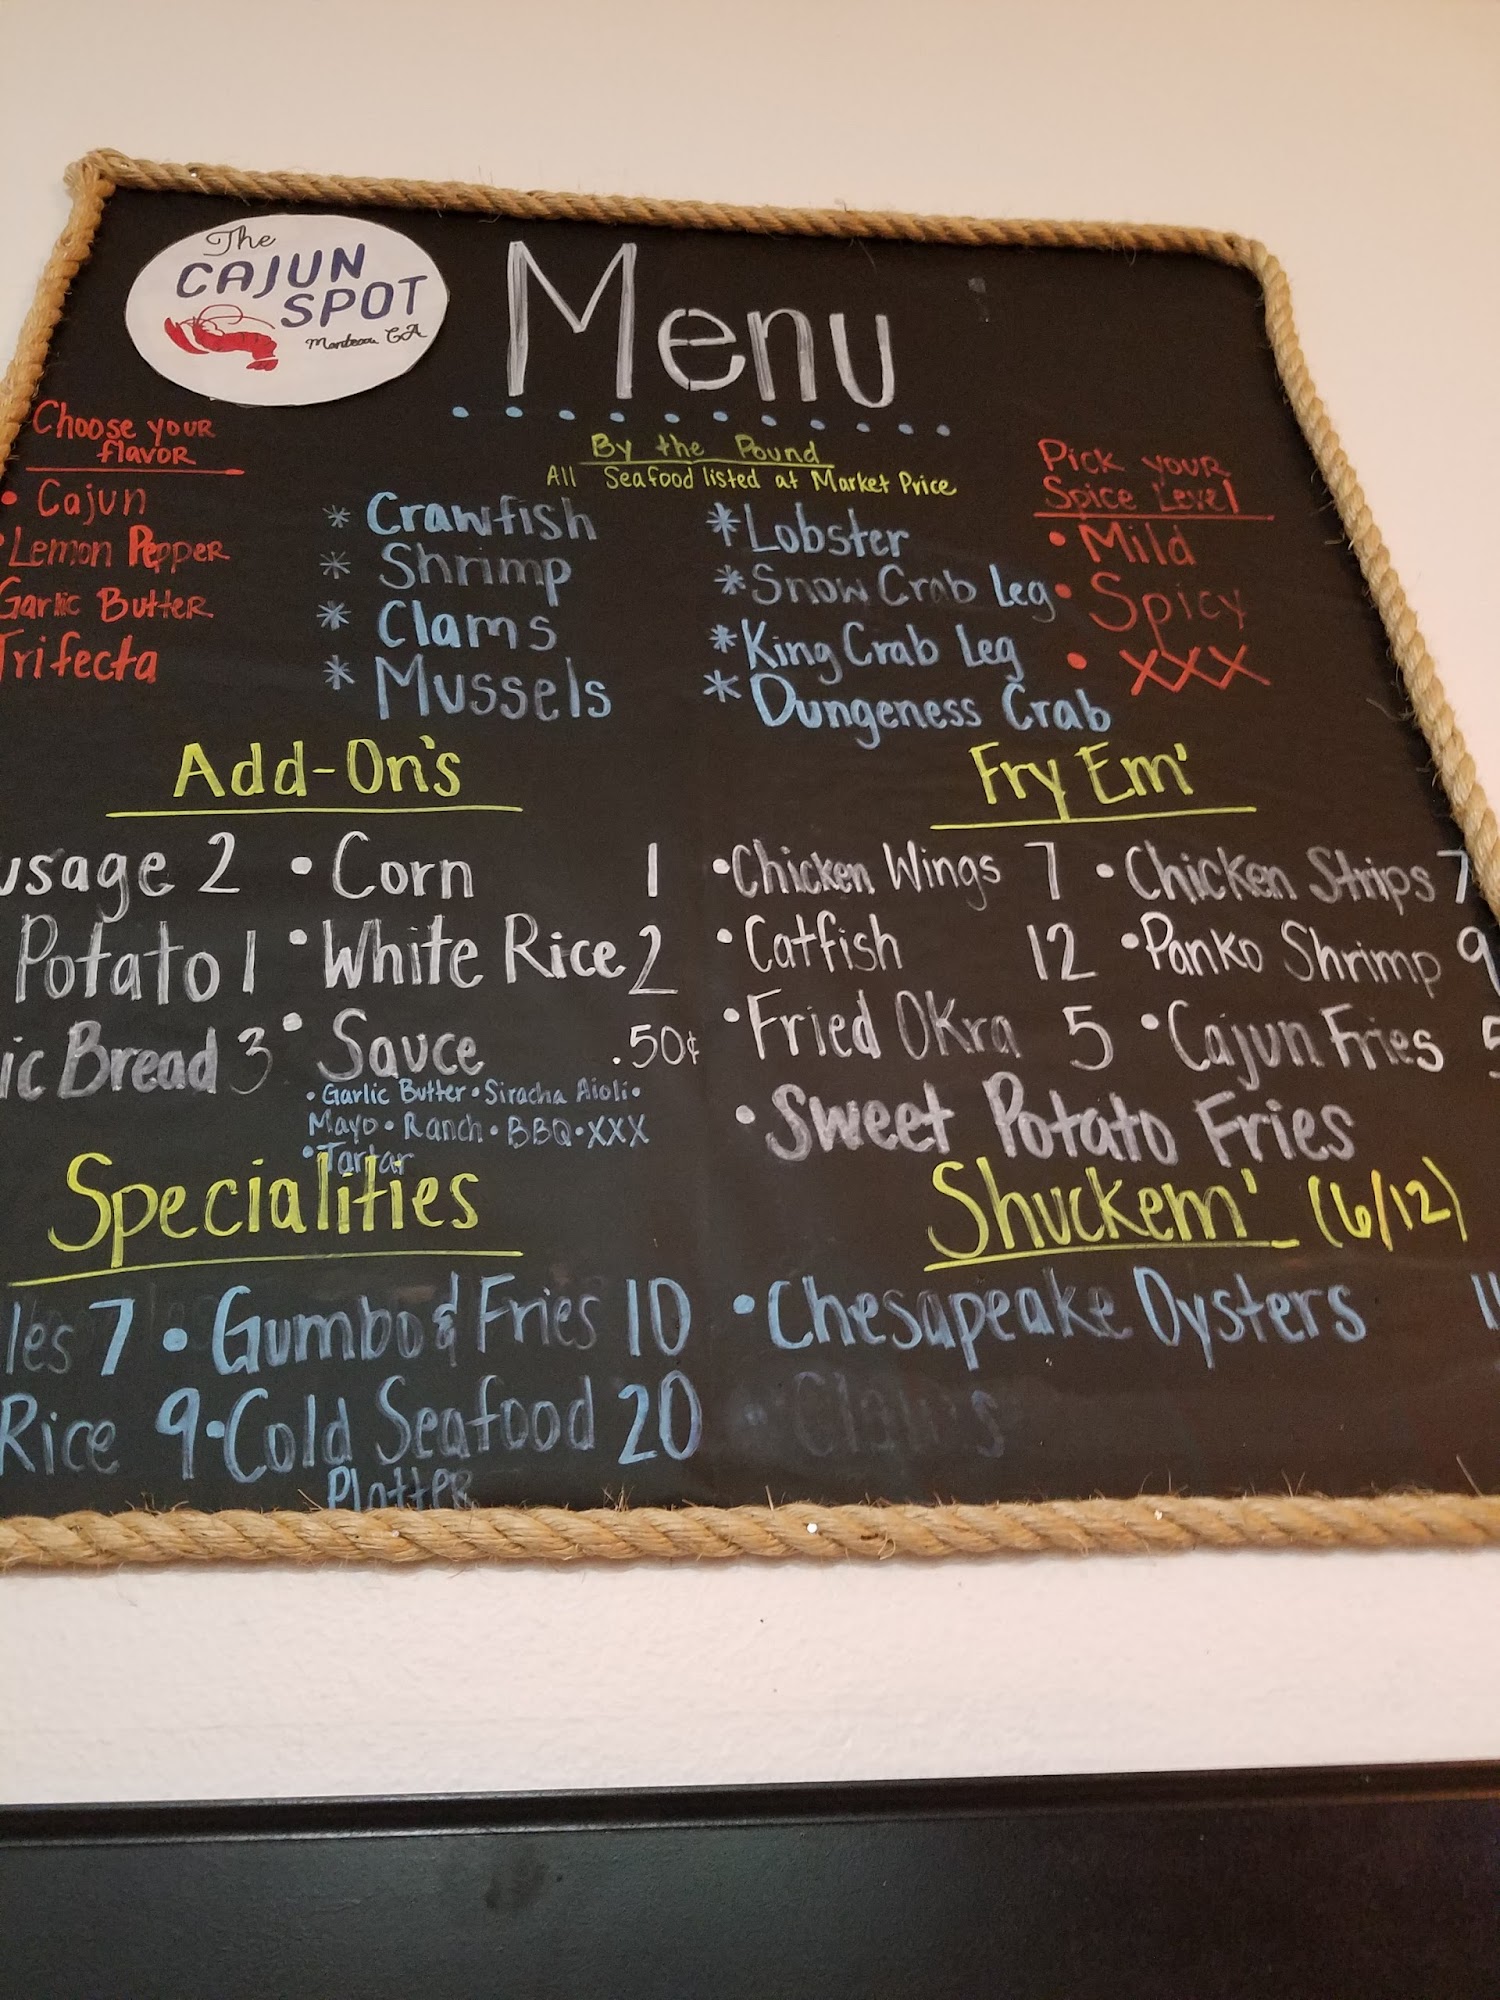 The
CAJUN
SPOT
CA
Menu
Choose your
flavor
• Cajun
• Lemon Pepper
Garlic Butter
Trifecta
By the Pound
All Seafood listed at Market Price
* Crawfish
* Shrimp
* Clams
* Mussels
* Lobster
* Snow Crab Leg
* King Crab Leg
* Dungeness Crab
Pick your
Spice Level
• Mild
• Spicy
• XXX
Add-On's
usage 2 • Corn 1
Potato 1 • White Rice 2
ic Bread 3 • Sauce .50¢
• Garlic Butter • Siracha Aioli •
Mayo • Ranch • BBQ • XXX
• Tartar
Fry Em'
• Chicken Wings 7 • Chicken Strips 7
• Catfish 12 • Panko Shrimp 9
• Fried Okra 5 • Cajun Fries 5
• Sweet Potato Fries
Specialities
les 7 • Gumbo & Fries 10
Rice 9 • Cold Seafood 20
Platter
Shuckem' (6/12)
• Chesapeake Oysters
• Clams